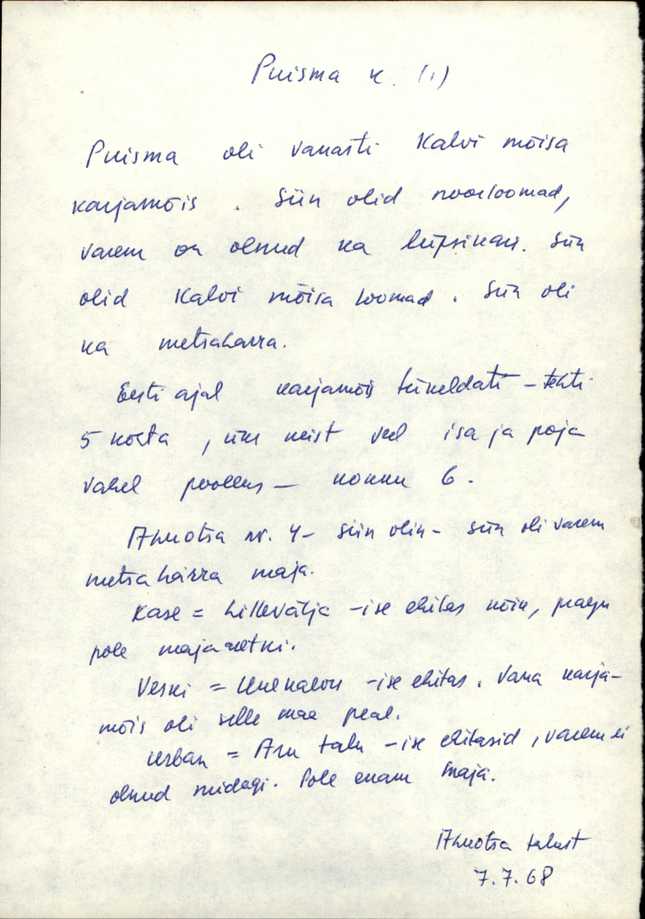 Puisma k. (1)
Puisma oli vanasti Kalvi mõisa
karjamõis. Siin olid noorloomad,
varem on olnud ka lüpsikari. Siin
olid Kalvi mõisa loomad. Siin oli
ka metsahärra.
Eesti ajal karjamõis tükeldati – tehti
5 kohta, üks neist veel isa ja poja
vahel pooleks – kokku 6.
Ahuotsa nr. 4 – siin olin – siin oli varem
metsahärra maja.
Kase = Lillevälja – ise ehitas kõik, praegu
pole maja
Veski = – ise ehitas. Vana karja-
mõis oli selle maa peal.
Urban = Aru talu – ise ehitasid, varem ei
olnud midagi. Pole enam maja.
Ahuotsa talust
7.7.68